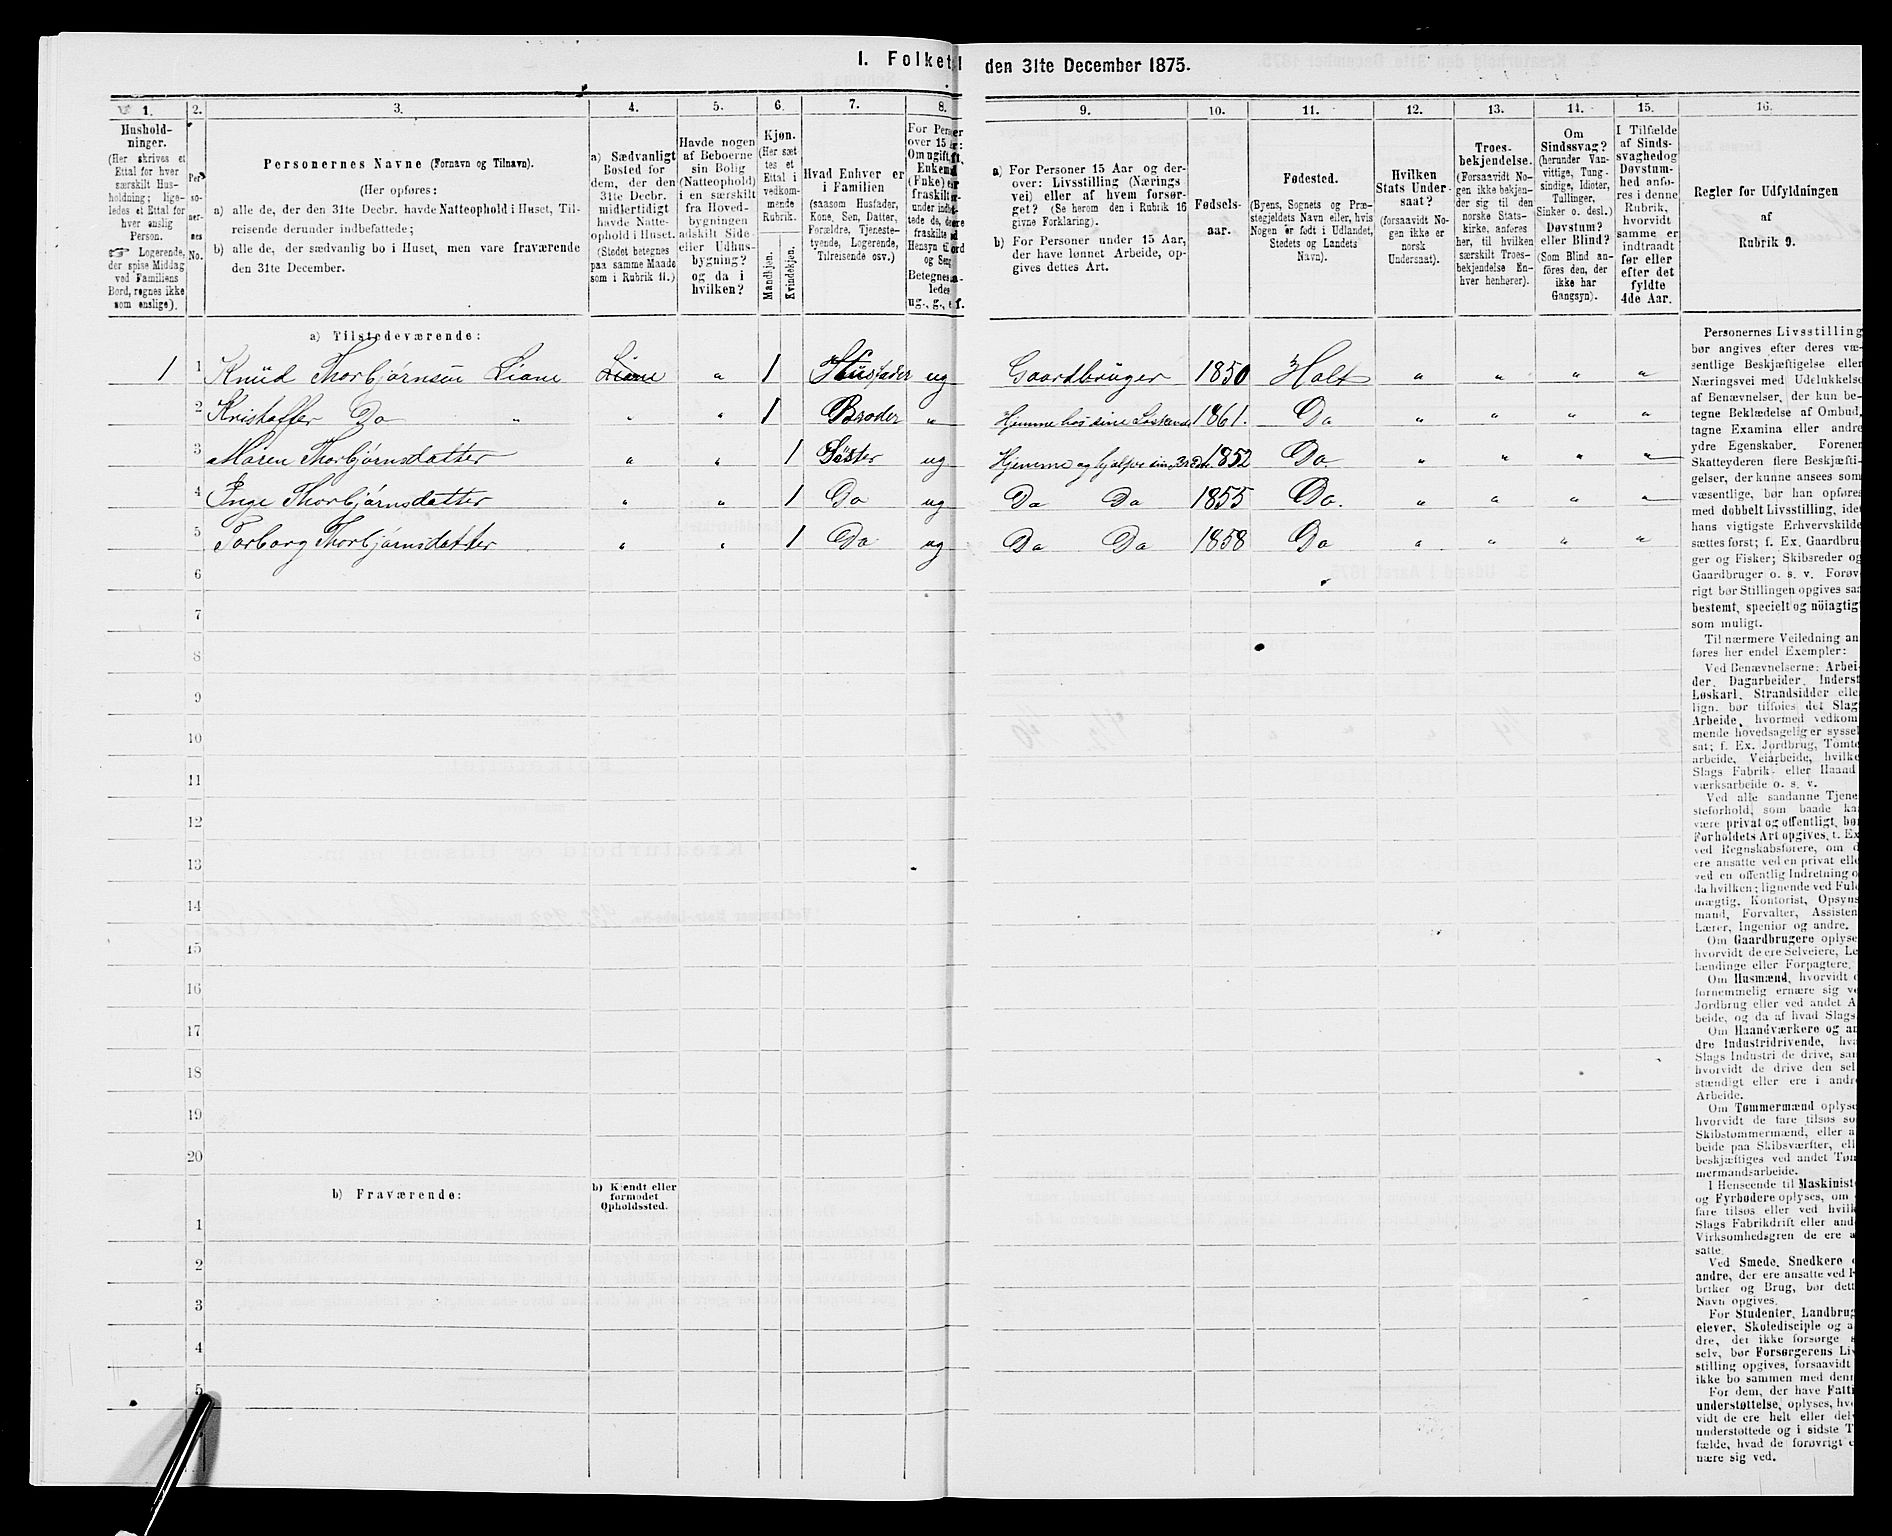 I. Folketal
den 31te December 1875.
1.
2.
3.
4.
5.
6.
7.
8.
9.
10.
11.
12.
13.
14.
15.
16.
Hushold-
ninger.
(Her skrives et
Ettal for hver
særskilt Hus-
holdning; lige-
ledes et Ettal for
hver enslig
Person.
☞ Logerende,
der spise Middag
ved Familiens
Bord, regnes ikke
som enslige).
Per-
so-
ner-
nes
No.
Personernes Navne (Fornavn og Tilnavn).
(Her opføres:
a) alle de, der den 31te Decbr. havde Natteophold i Huset, Til-
reisende derunder indbefattede;
b) alle de, der sædvanlig bo i Huset, men vare fraværende
den 31te December.
a) Sædvanligt
Bosted for
dem, der den
31te Decbr.
midlertidigt
havde Natte-
ophold i Huset.
(Stedet betegnes
paa samme Maade
som i Rubrik 11.)
Havde nogen
af Beboerne
sin Bolig
(Natteophold)
i en særskilt
fra Hoved-
bygningen
adskilt Side-
eller Udhus-
bygning?
og da i
hvilken?
Kjøn.
(Her sæt-
tes et
Ettal i
vedkom-
mende
Rubrik.
Mandkjøn.
Kvindekjøn.
Hvad Enhver er
i Familien
(saasom Husfader,
Kone, Søn, Datter,
Forældre, Tjeneste-
tyende, Logerende,
Tilreisende osv.)
For Per
over 15
Om ugift,
Enkem
(Enke)
fraskilt
under indbet-
tede de,
fraskilte
Hensyn til ord
og Seng
Betegnes
ledes
ug., g., e. f.
a) For Personer 15 Aar og der-
over: Livsstilling (Nærings
vei) eller af hvem forsør-
get? (Se herom den i Rubrik 16
givne Forklaring).
b) For Personer under 15 Aar,
der have lønnet Arbeide, op-
gives dettes Art.
Fødsels-
aar.
Fødested.
(Byens, Sognets og Præ-
stegjeldets Navn eller, hvis
Nogen er født i Udlandet,
Stedets og Landets
Navn).
Hvilken
Stats Under-
saat?
(forsaavidt No-
gen ikke er
norsk
Undersaat).
Troes-
bekjendelse.
(Forsaavidt No-
gen ikke bekjen-
der sig til den
norske Stats-
kirke, anføres
her, til hvilken
særskilt Troes-
bekjendelse En-
hver henhører).
Om
Sindssvag?
(herunder Van-
vittige, Tung-
sindige, Idioter,
Tullinger,
Sinker o. desl.)
Døvstum?
eller Blind?
(Som Blind an-
føres den, der
ikke har
Gangsyn).
I Tilfælde
af Sinds-
svaghed og
Døvstum-
hed anfø-
res i denne
Rubrik,
hvorvidt
samme er
indtraadt
før eller
efter det
fyldte
4de Aar.
Regler for Udfyldningen
af
Rubrik 9.
a) Tilstedeværende:
1 1 Knud Thorbjørnsen Liane Liane " 1 Husfader ug Gaardbruger 1850 Holt " " " "
2 Kristoffer Do " " " 1 Broder " Hjemme hos sine 1861. Do " " " "
3 Maren Thorbjørnsdatter " " 1 Søster ug Hjemme og hjælper sin 1852 Do " " " "
4 Inge Thorbjørnsdatter " " 1 Do ug Do Do 1855 Do. " " " "
5 Torborg Thorbjørnsdatter " " 1 Do ug Do Do 1858 Do " " " "
6
7
8
9
10
11
12
13
14
15
16
17
18
19
20
b) Fraværende:
b) Kjendt eller
formodet
Opholdssted.
1
2
3
4
5
Personernes Livsstilling
bør angives efter deres væ-
sentlige Beskjæftigelse eller
Næringsvei med Udelukkelse
af Benævnelser, der kun be-
tegne Beklædelse af Ombud,
tagne Examina eller andre
ydre Egenskaber. Forener
Skatteyderen flere Beskjæfti-
gelser, der kunne ansees som
væsentlige, bør han opføres
med dobbelt Livsstilling, idet
hans vigtigste Erhvervskilde
sættes først; f. Ex. Gaardbru-
ger og Fisker; Skibsreder og
Gaardbruger o. s. v. Forøv-
rigt bør Stillingen opgives saa
bestemt, specielt og nöiagtig
som muligt.
Til nærmere Veiledning an-
føres her endel Exempler:
Ved Benævnelserne: Arbei-
der, Dagarbeider, Inderst
Løskarl, Strandsidder elle
lign. bør tilføies det Slag
Arbeide, hvormed vedkom
mende hovedsagelig er syssel
sat; f. Ex. Jordbrug, Tomte
arbeide, Veiarbeide, hvilke
Slags Fabrik- eller Haand
værksarbeide o. s. v.
Ved alle saadanne Tjene
steforhold, som baade ka
være privat og offentligt, bø
Forholdets Art opgives, t. Ex
ved Regnskabsførere, om d
ere ansatte ved en privat elle
ved en offentlig Indretning o
da hvilken; lignende ved Ful
mægtig, Kontorist, Opsyns
mand, Forvalter, Assisten
Lærer, Ingeniør og andre.
Om Gaardbrugere oplyse
hvorvidt de ere Selveiere, Le
lændinge eller Forpagtere.
Om Husmænd, hvorvidt
fornemmelig ernære sig ve
Jordbrug eller ved andet A
beide, og da af hvad Slags
Om Haandværkere og an
dre Industridrivende, hva
Slags Industri de drive, sam
hvorvidt de drive den sel
stændigt eller ere i andr
Arbeide.
Om Tømmermænd oplyse
hvorvidt de fare tilsøs so
Skibstømmermænd, eller a
beide paa Skibsværfter, ell
beskjæftiges ved andet Tøm
mermandsarbeide.
I Henseende til Maskiniste
og Fyrbødere oplyses, om
fare tilsøs eller ved hvilk
Slags Fabrikdrift eller ande
Virksomhedsgren de ere a
satte.
Ved Smede, Snedkere
andre, der ere ansatte ved F
briker og Brug, bør dett
Navn opgives.
For Studenter, Landbrug
elever, Skoledisciple og a
dre, der ikke forsørge s
selv, bør Forsørgerens Liv
stilling opgives, forsaavidt
ikke bo sammen med denn
For dem, der have Fatti
understøttelse, oplyses, hvo
vidt de ere helt eller delv
understøttede og i sidste T
fælde, hvad de forøvrigt e
nære sig ved.